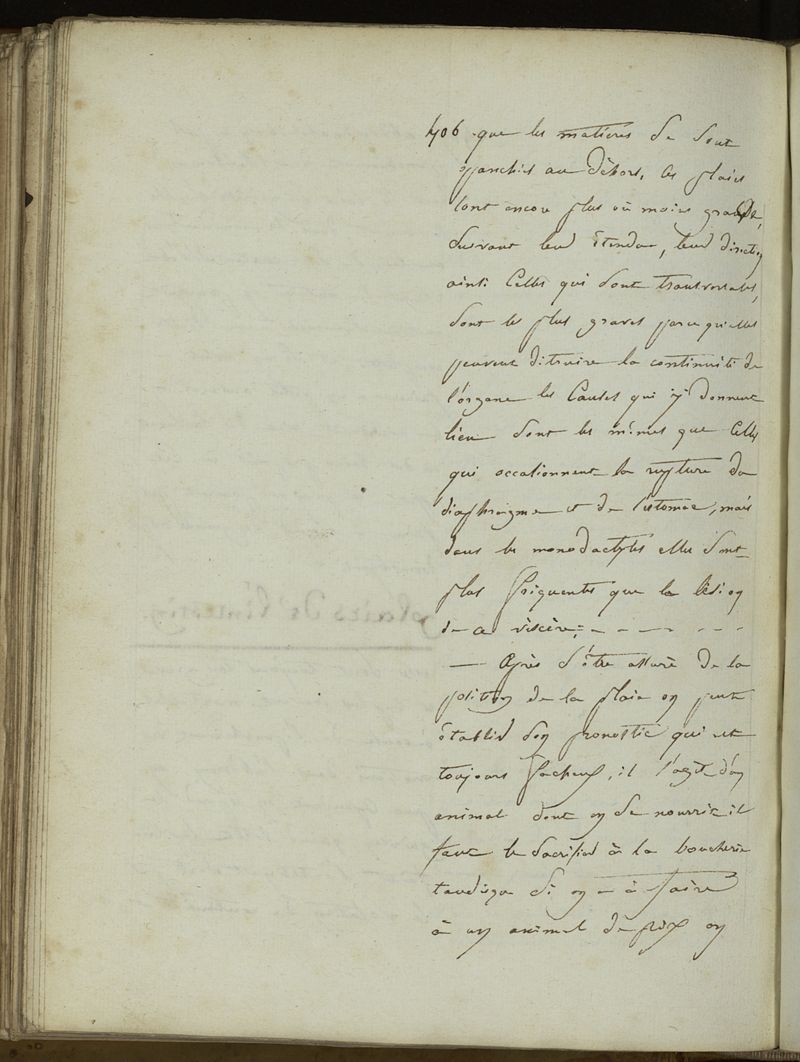 406 que les matieres Se Sont
epanchés au Déhors, les plaies
sont encore plus où moins grande,
Suivant leur étendue, leur direction
ainsi Celles qui Sont transversales,
Sont les plus graves parcequ'elles
peuvent ditruire la continuité de
l'organe les Causes qui ÿ Donnent
lieu Sont les mêmes que Celles
qui occationnent la rupture du
diaphragme et de l'estomac, mais
dans les monodactyles elles Sont
plus fréquentes que la lésion
de ce viscère;
— Après S'être assuré De la
position de la plaie on peut
établir Son pronostic qui est
toujours facheux, il s'agit d'un
animal dont on Se nourrit il
faut le Sacrifier à la boucherie
tandisque Si on a à faire
à un animal de prix on
plaies De l'intestin